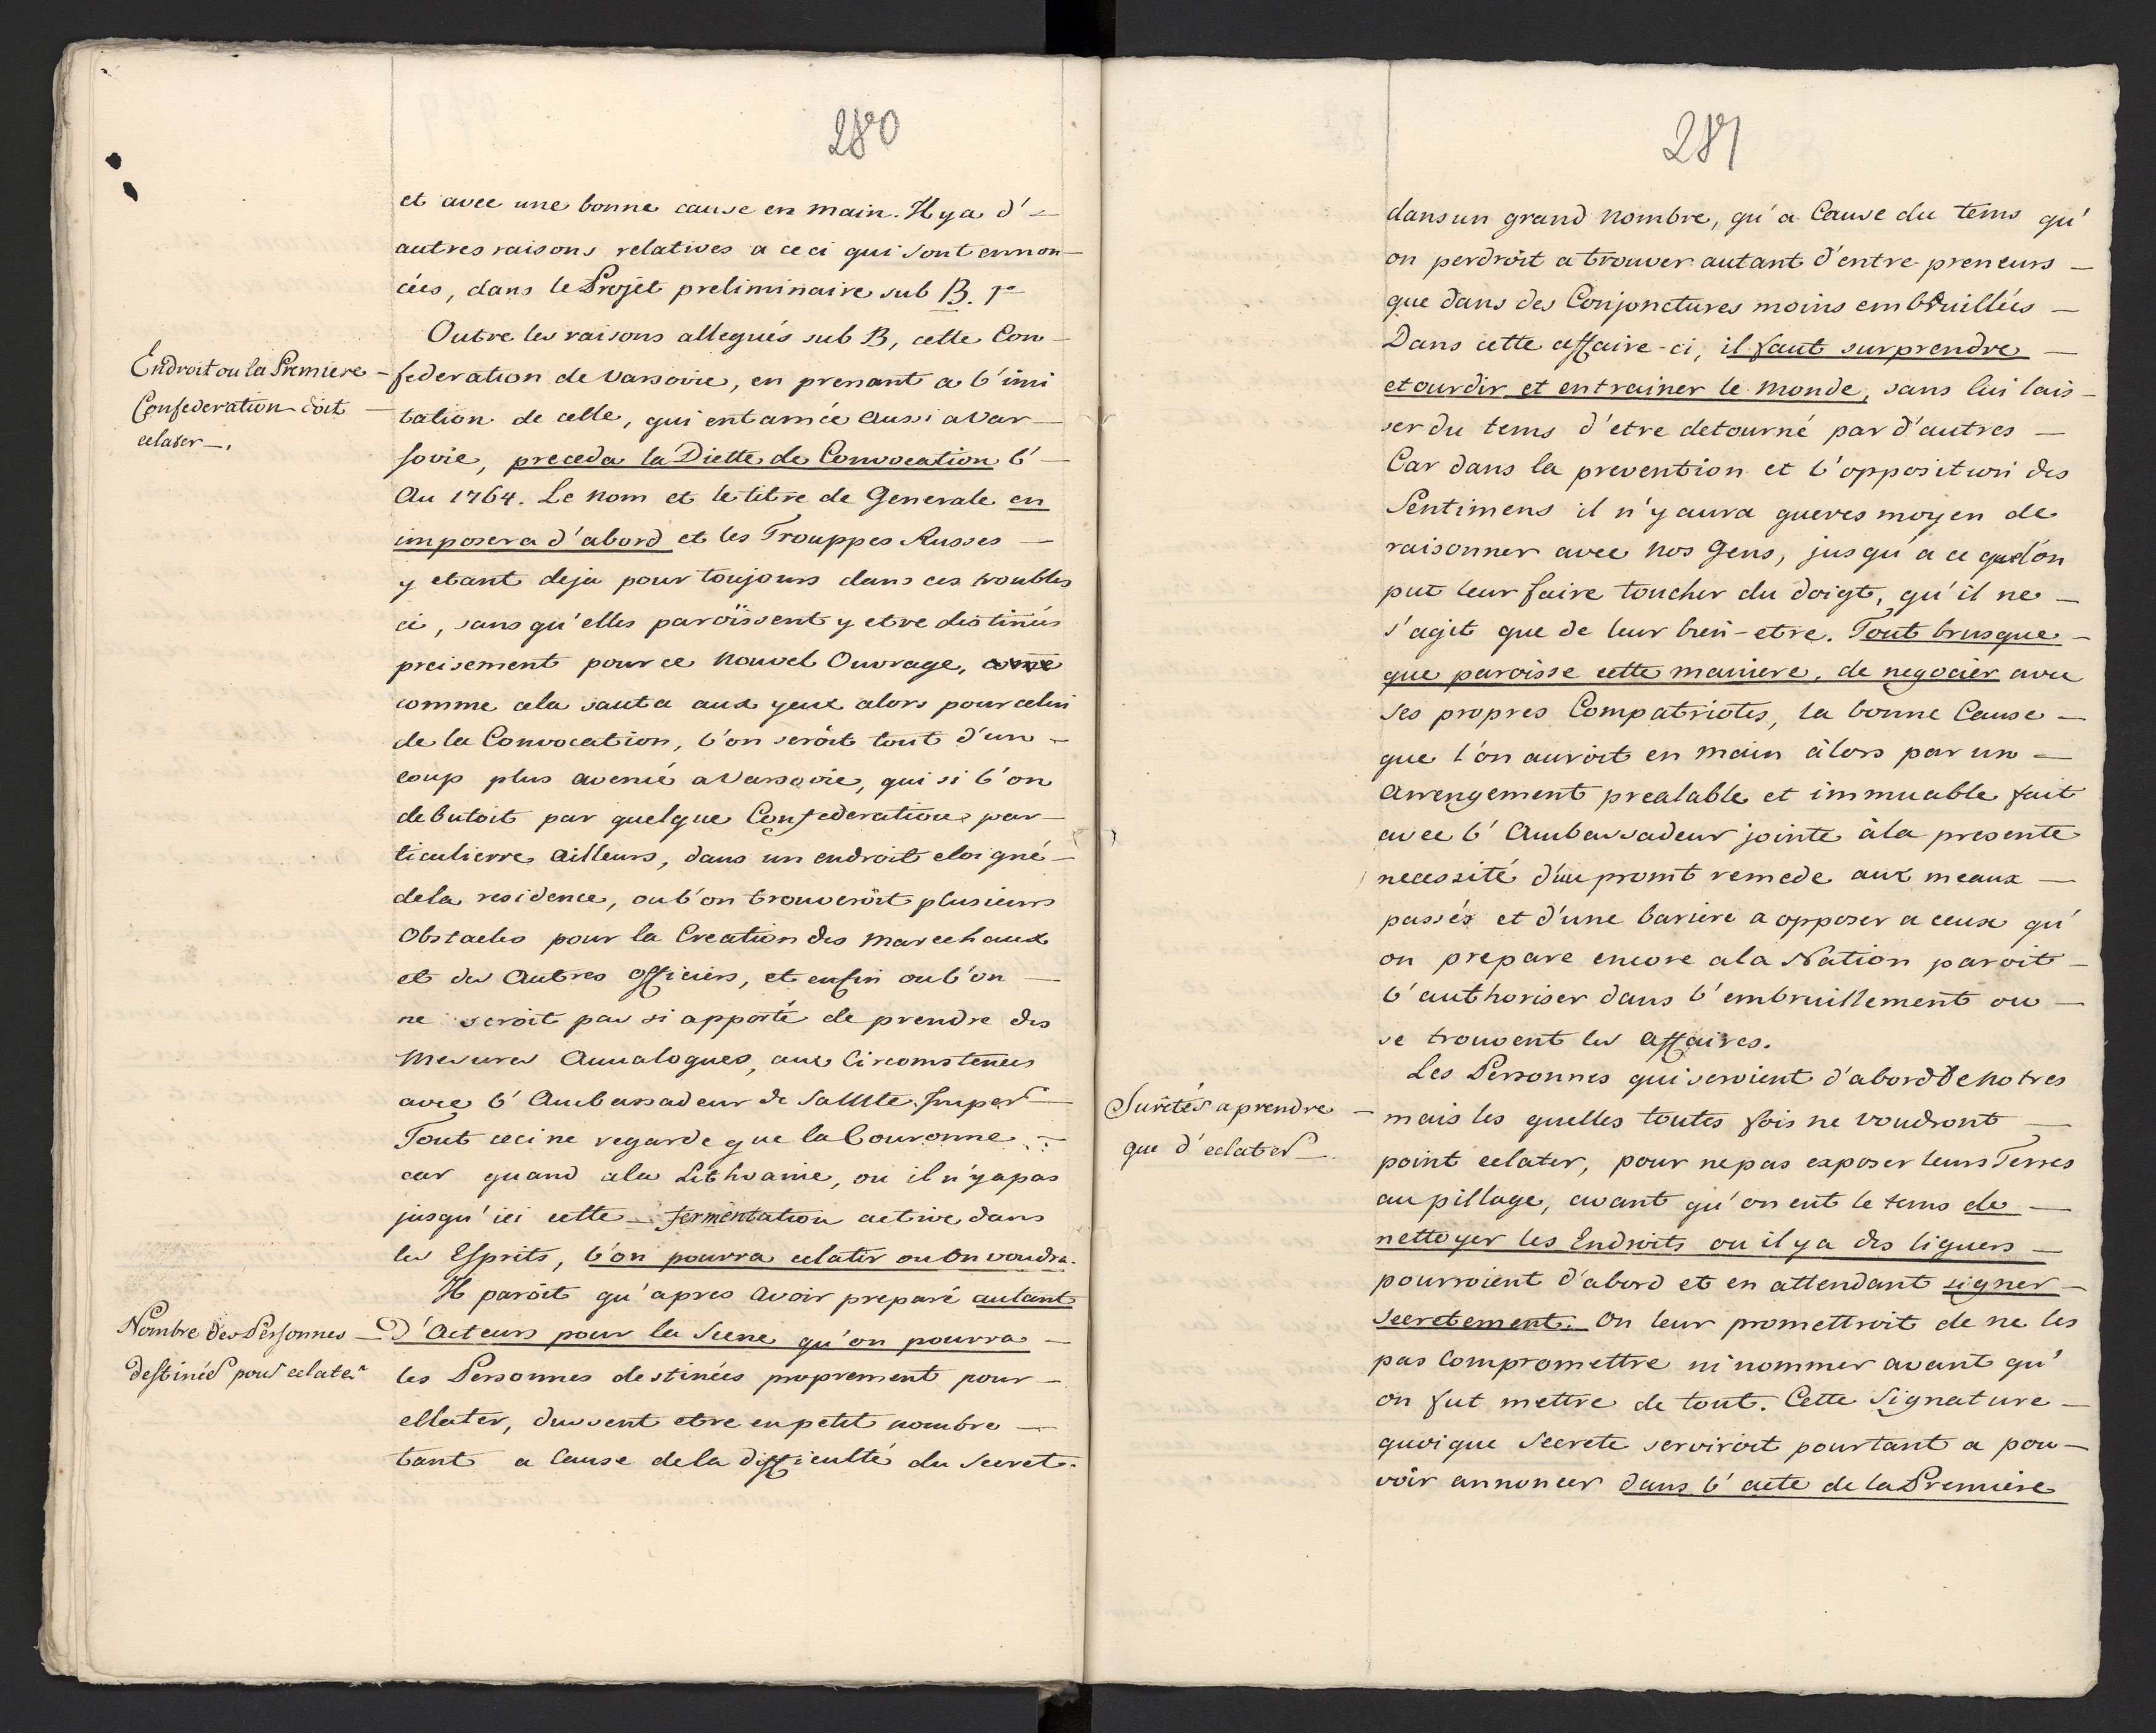 280
et avec une bonne cause en main. Il y a d'
autres raisons relatives a ceci qui sont ennon-
cées, dans le Projet preliminaire sub B.
Outre les raisons allegués sub B, cette Con-
Endroit ou la Premiere
Confederation doit
eclater.
federation de Varsovie, en prenant a l'imi
tation de celle, qui entamée aussi a Var-
sovie, preceda la Diette de Convocation l'
An 1764. Le nom et le titre de Generale en
imposera d'abord et les Trouppes Russes
y etant deja pour toujours dans ces troubles
ci, sans qu'elles paroïssent y etre destinées
precisement pour ce nouvel Ouvrage,
comme cela sauta aux yeux alors pour celui
de la Convocation, l'on seroit tout d'un
coup plus avencé a Varsovie, qui si l'on
debutoit par quelque Confederation par-
ticulierre ailleurs, dans un endroit eloigné
de la residence, ou l'on trouveroit plusieurs
Obstacles pour la Creation des Marechaux
et des Autres Officiers, et enfin ou l'on
ne seroit pas si apporté de prendre des
Mesures Annalogues, aux Circomstences
avec l'Ambassadeur de Sa Mté. Imper
Tout ceci ne regarde que la Couronne
car quand a la Lithvanie, ou il n'y a pas
jusqu'ici cette fermentation active dans
les Esprits, l'on pourra eclater ou on voudra.
Il paroit qu'apres avoir preparé autant
Nombre des Personnes
destinées pour eclater
d'Acteurs pour la Scene qu'on pourra
les Personnes destinées proprement pour
ellater, dussent etre en petit nombre
tant a Cause de la difficulté du Secret.
281
dans un grand nombre, qu'a Cause du tems qu'
on perdroit a trouver autant d'entre-preneurs
que dans des Conjonctures moins embruillées
Dans cette affaire-ci, il faut surprendre
etourdir et entrainer le monde, sans lui lais-
ser du tems d'etre detourné par d'autres
Car dans la prevention et l'opposition des
Sentimens il n'y aura gueres moyen de
raisonner avec nos Gens, jusqu'a ce que l'on
put leur faire toucher du doigt, qu'il ne
s'agit que de leur bien-etre. Tout brusque
que paroisse cette maniere, de negocier avec
ses propres Compatriotes, la bonne Cause
que l'on auroit en main àlors par un
Arrengement prealable et immuable fait
avec l'Ambassadeur jointe àla presente
necessité d'un promt remede aux meaux
passés et d'une bariere a opposer a ceux qu'
on prepare encore a la Nation paroit
l'authoriser dans l'embruillement ou
se trouvent les affaires.
Les Personnes qui seroient d'abord de Notres
Suretés a prendre
que d'eclater
mais les quelles toutes fois ne voudront
point eclater, pour ne pas exposer leurs Terres
au pillage, avant qu'on eut le tems de
nettoyer les Endroits ou il y a des liguers
pourroient d'abord et en attendant signer
Secretement. On leur promettroit de ne les
pas compromettre ni nommer avant qu'
on fut mettre de tout. Cette Signature
quoique Secrete serviroit pourtant a pou-
voir annoncer dans l'acte de la Premiere